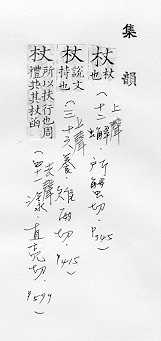 集韻
杖 杖也
(上聲 十二蟹 所蟹切 P345)
杖 說文持也
(上聲 三十六養 雉兩切 P415)
杖 所以扶行也周禮共其杖
(去聲 四十一漾 直亮切 P599)